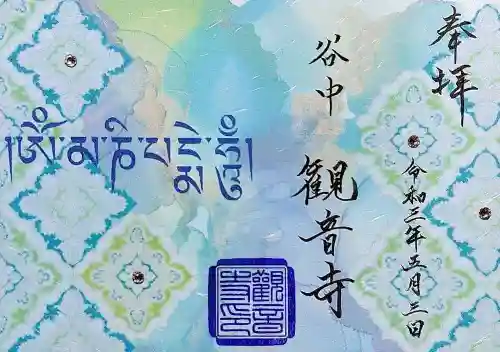 奉拝
谷中
觀音寺
令和三年五月三日
།ཨོཾ་མ་ཎི་པ་དྨེ་ཧཱུྃ།
觀音
寺印